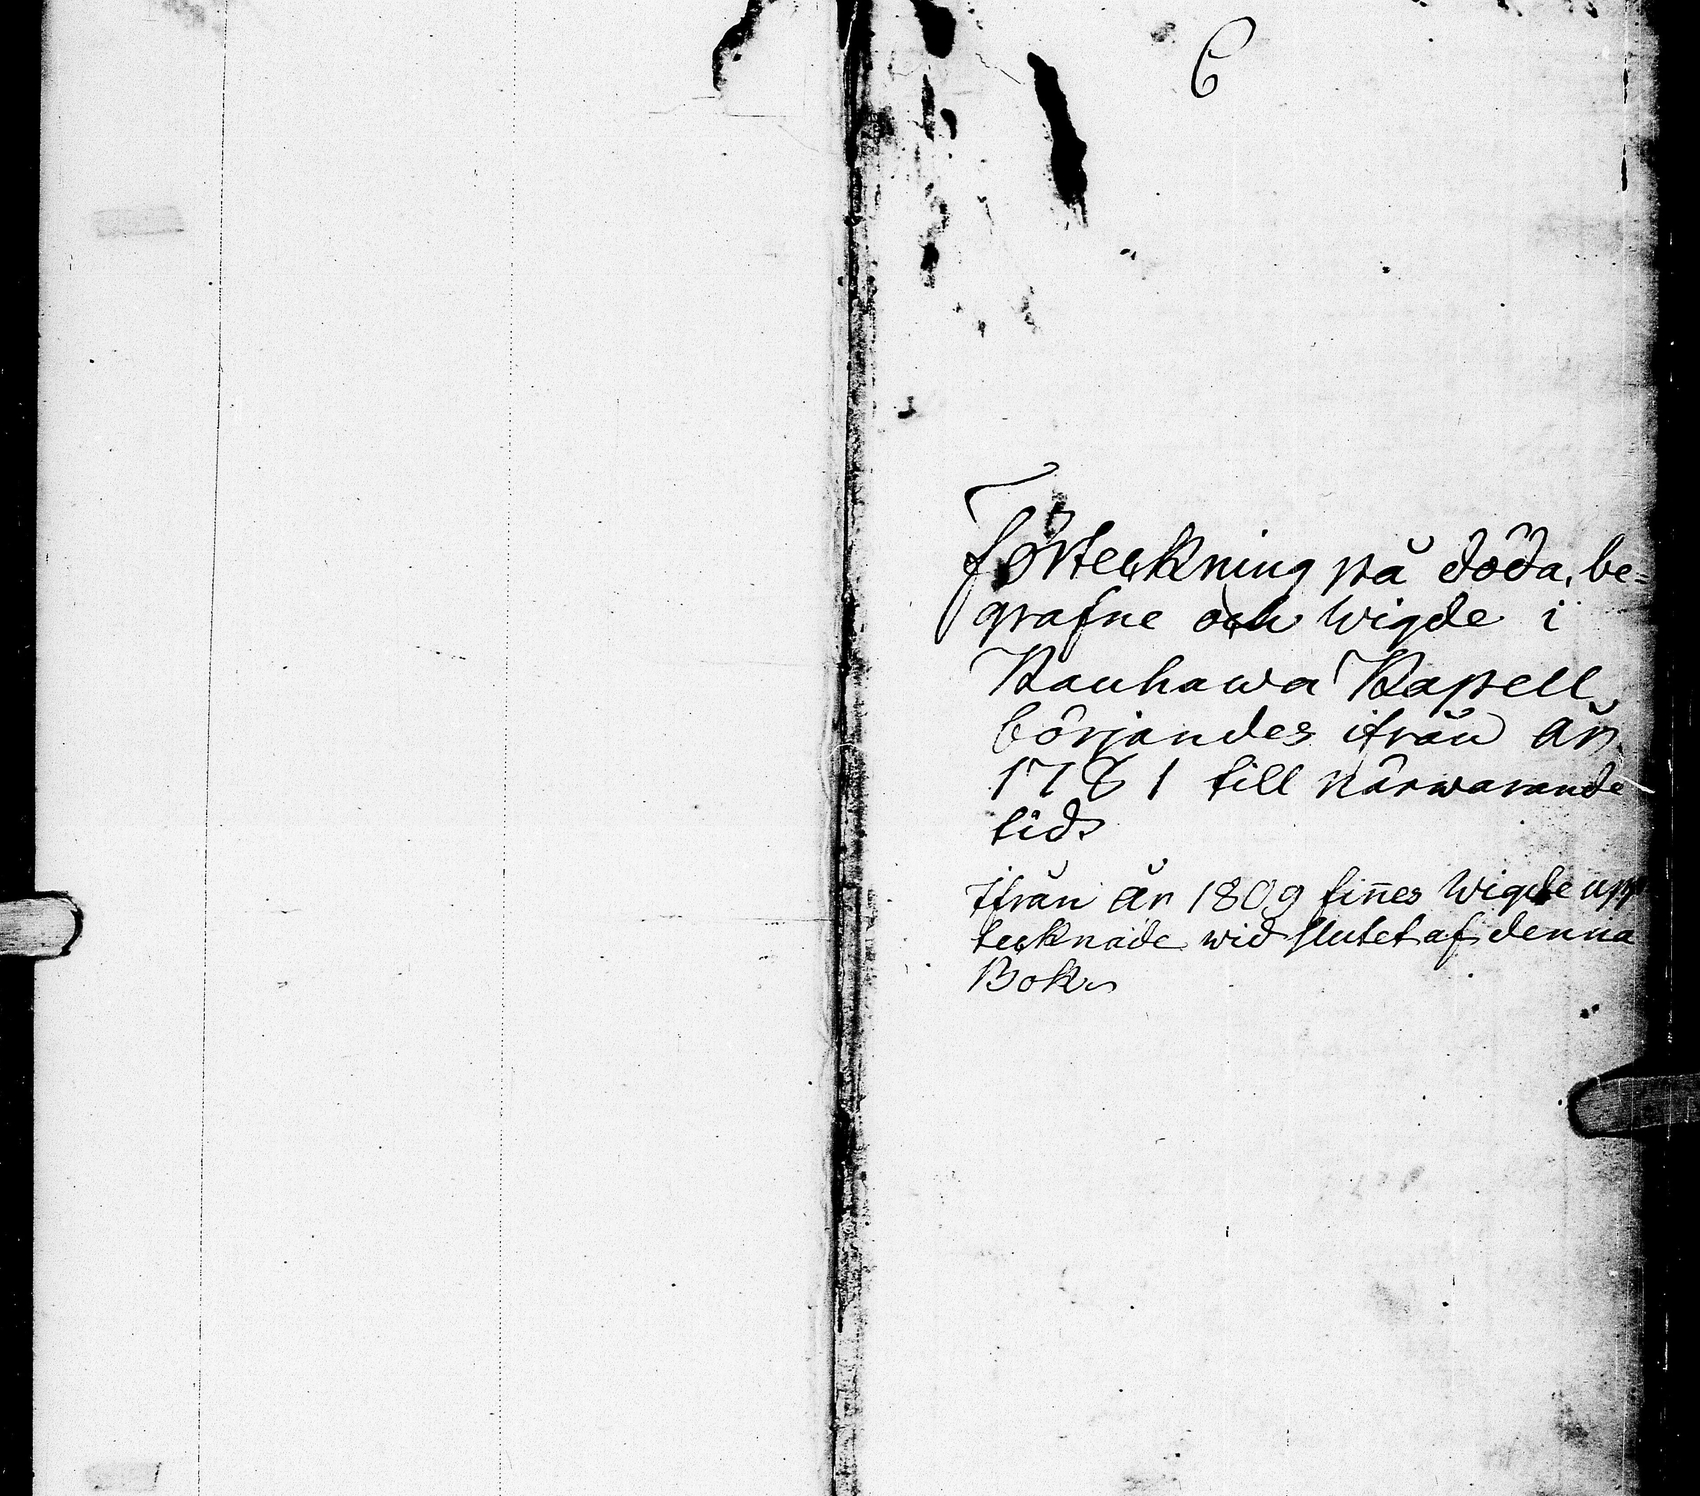 6
Förteckning på döda, be-
grafne och wigde i
Kauhawa Kapell
börjandes ifrån år
1781 till närwarande
tid.
Ifrån år 1809 fines wigde upp
tecknade wid slutet af denna
Bok.